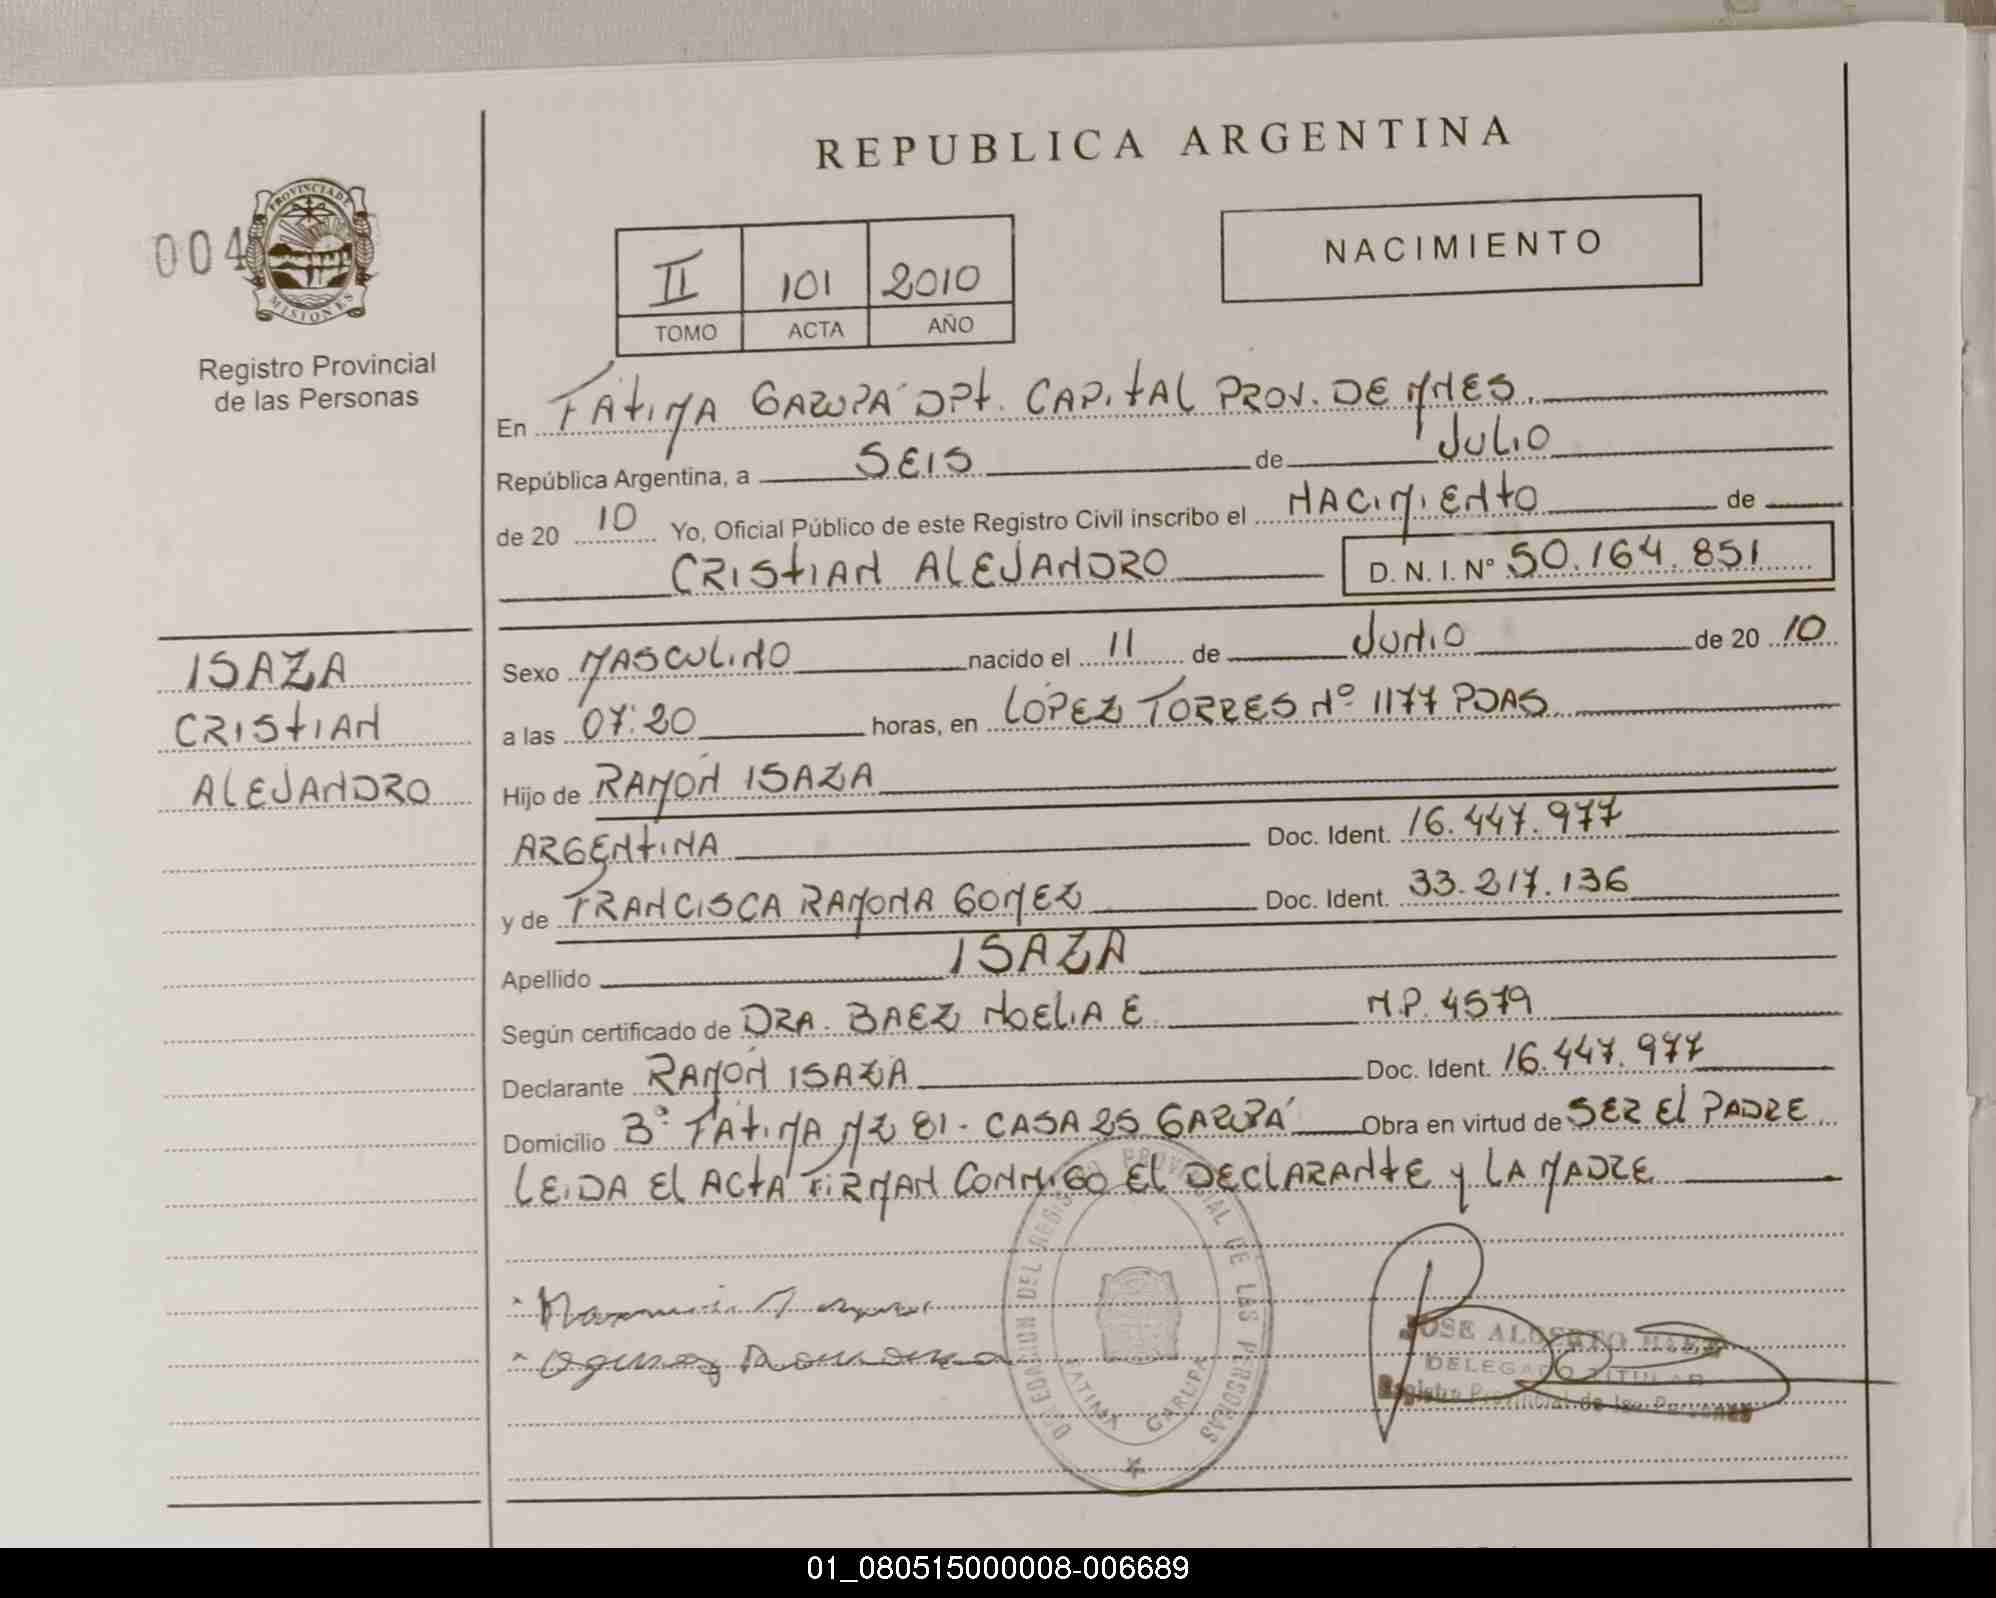 REPUBLICA ARGENTINA
004
PROVINCIA DE
MISIONES
Registro Provincial
de las Personas
II 101 2010
TOMO ACTA AÑO
NACIMIENTO
En FÁTIMA GARUPÁ DPt. CAPITAL PROV. DE MNES.
República Argentina, a SEIS de JULIO
de 20 10 Yo, Oficial Público de este Registro Civil inscribo el NACIMIENTO de
CRISTIAN ALEJANDRO D.N.I. Nº 50.164.851
ISAZA
CRISTIAN
ALEJANDRO
Sexo MASCULINO nacido el 11 de JUNIO de 20 10
a las 07:20 horas, en LÓPEZ TORRES Nº 1177 PDAS
Hijo de RAMÓN ISAZA
ARGENTINA Doc. Ident. 16.447.977
y de FRANCISCA RAMONA GOMEZ Doc. Ident. 33.217.136
Apellido ISAZA
Según certificado de DRA. BAEZ NOELIA E M.P. 4579
Declarante RAMÓN ISAZA Doc. Ident. 16.447.977
Domicilio Bº FÁTIMA MZ 81 - CASA 25 GARUPÁ Obra en virtud de SER El PADRE
LEIDA El ACTA FIRMAN CONMIGO El DECLARANTE y LA MADRE
DELEGACION DEL REGISTRO PROVINCIAL DE LAS PERSONAS
FATIMA GARUPA
JOSE ALBERTO BAEZ
DELEGADO TITULAR
Registro Provincial de las Personas
01_080515000008-006689